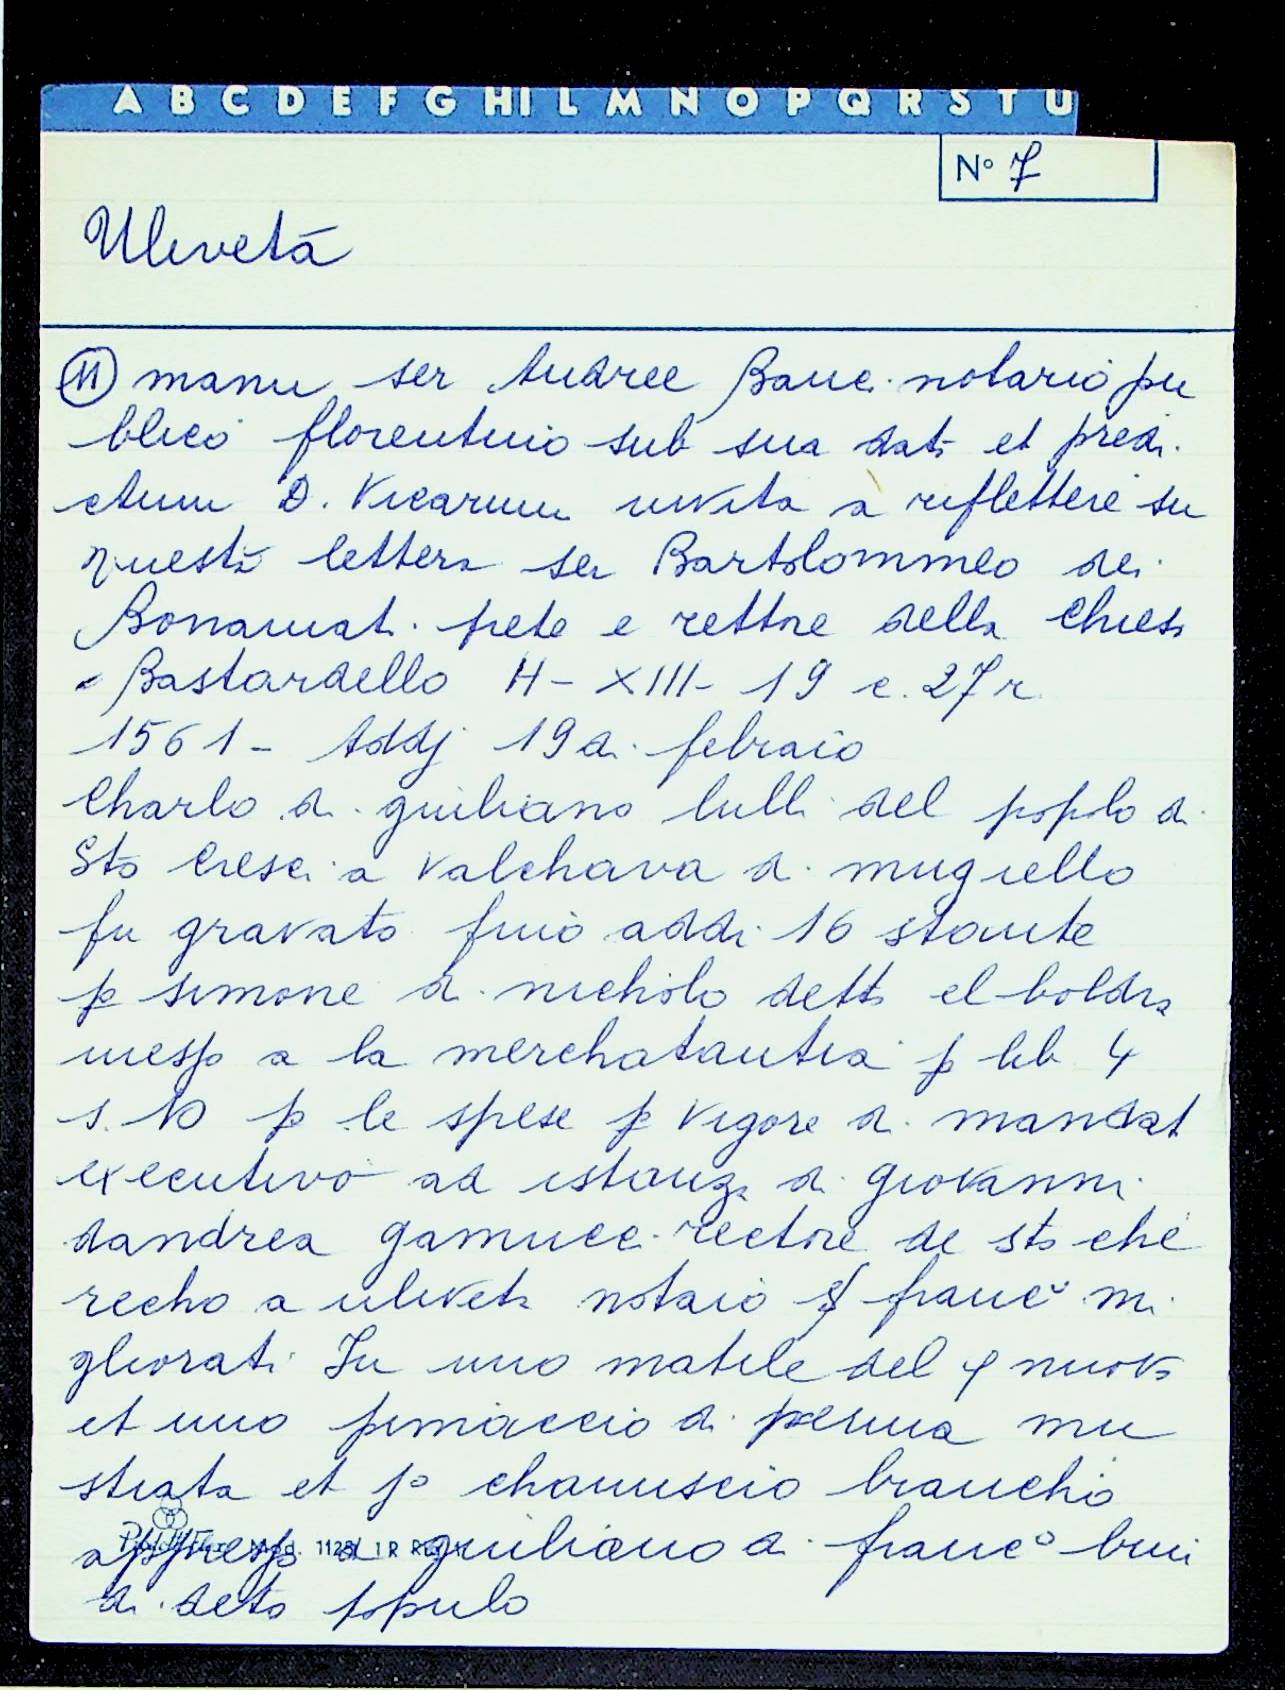 A B C D E F G HI L M N O P Q R S T U
N° 7
Uliveta
11 manu ser Andree Bauci notario pu
blico florentino sub sua data et predi
ctum D. Vicarium invita a riflettere su
questa lettera ser Bartolommeo dei
Bonamat. prete e rettore della Chiesa
Bastardello H - XIII - 19 c. 27 r
1561 - Addj 19 di febraio
Charlo di giuliano lulli del popolo di
Sto Cresci a Valchava di mugiello
fu gravato fino addi 16 stante
p simone di nicholo detto el boldra
messo a la merchatantia p lib 4
s. 10 p le spese p vigore di mandat
executivo ad istanza di giovanni
dandrea gamucci rectore de sto chi
recho a uliveta notaio franc° mi
gliorati In uno matile del nuovo
et uno pimaccio di penna mu
strata et p° chanuscio brancho
appresso a giuliano di franc° bini
di deto populo